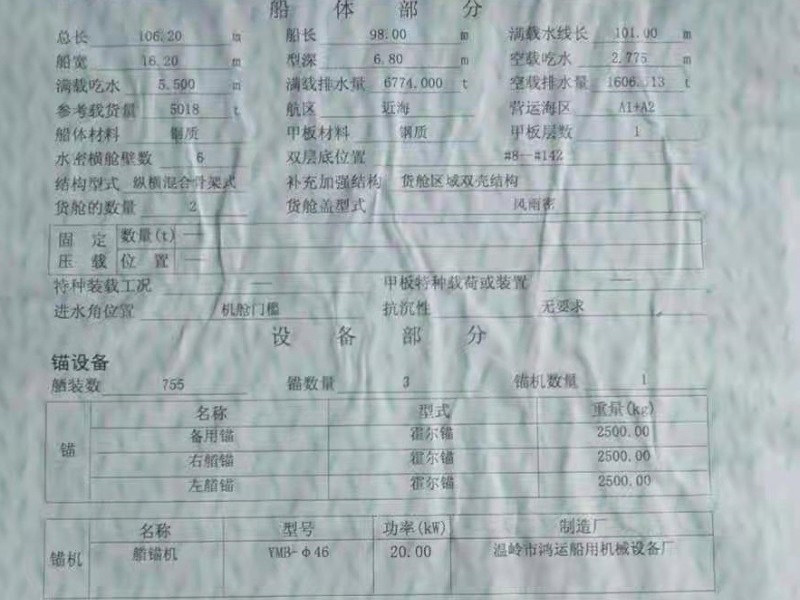 船 体 部 分
总长 106.20 m 船长 98.00 m 满载水线长 101.00 m
船宽 16.20 m 型深 6.80 m 空载吃水 2.775 m
满载吃水 5.500 m 满载排水量 6774.000 t 空载排水量 1606. 13 t
参考载货量 5018 t 航区 近海 营运海区 A1+A2
船体材料 钢质 甲板材料 钢质 甲板层数 1
水密横舱壁数 6 双层底位置 #8--#142
结构型式 纵横混合骨架式 补充加强结构 货舱区域双壳结构
货舱的数量 2 货舱盖型式 风雨密
固 定 数量(t) —
压 载 位 置 —
特种装载工况 — 甲板特种载荷或装置 —
进水角位置 机舱门槛 抗沉性 无要求
设 备 部 分
锚设备
舾装数 755 锚数量 3 锚机数量 1
名称 型式 重量(kg)
备用锚 霍尔锚 2500.00
锚 右艏锚 霍尔锚 2500.00
左艏锚 霍尔锚 2500.00
名称 型号 功率(kW) 制造厂
锚机 艏锚机 YMB-φ46 20.00 温岭市鸿运船用机械设备厂